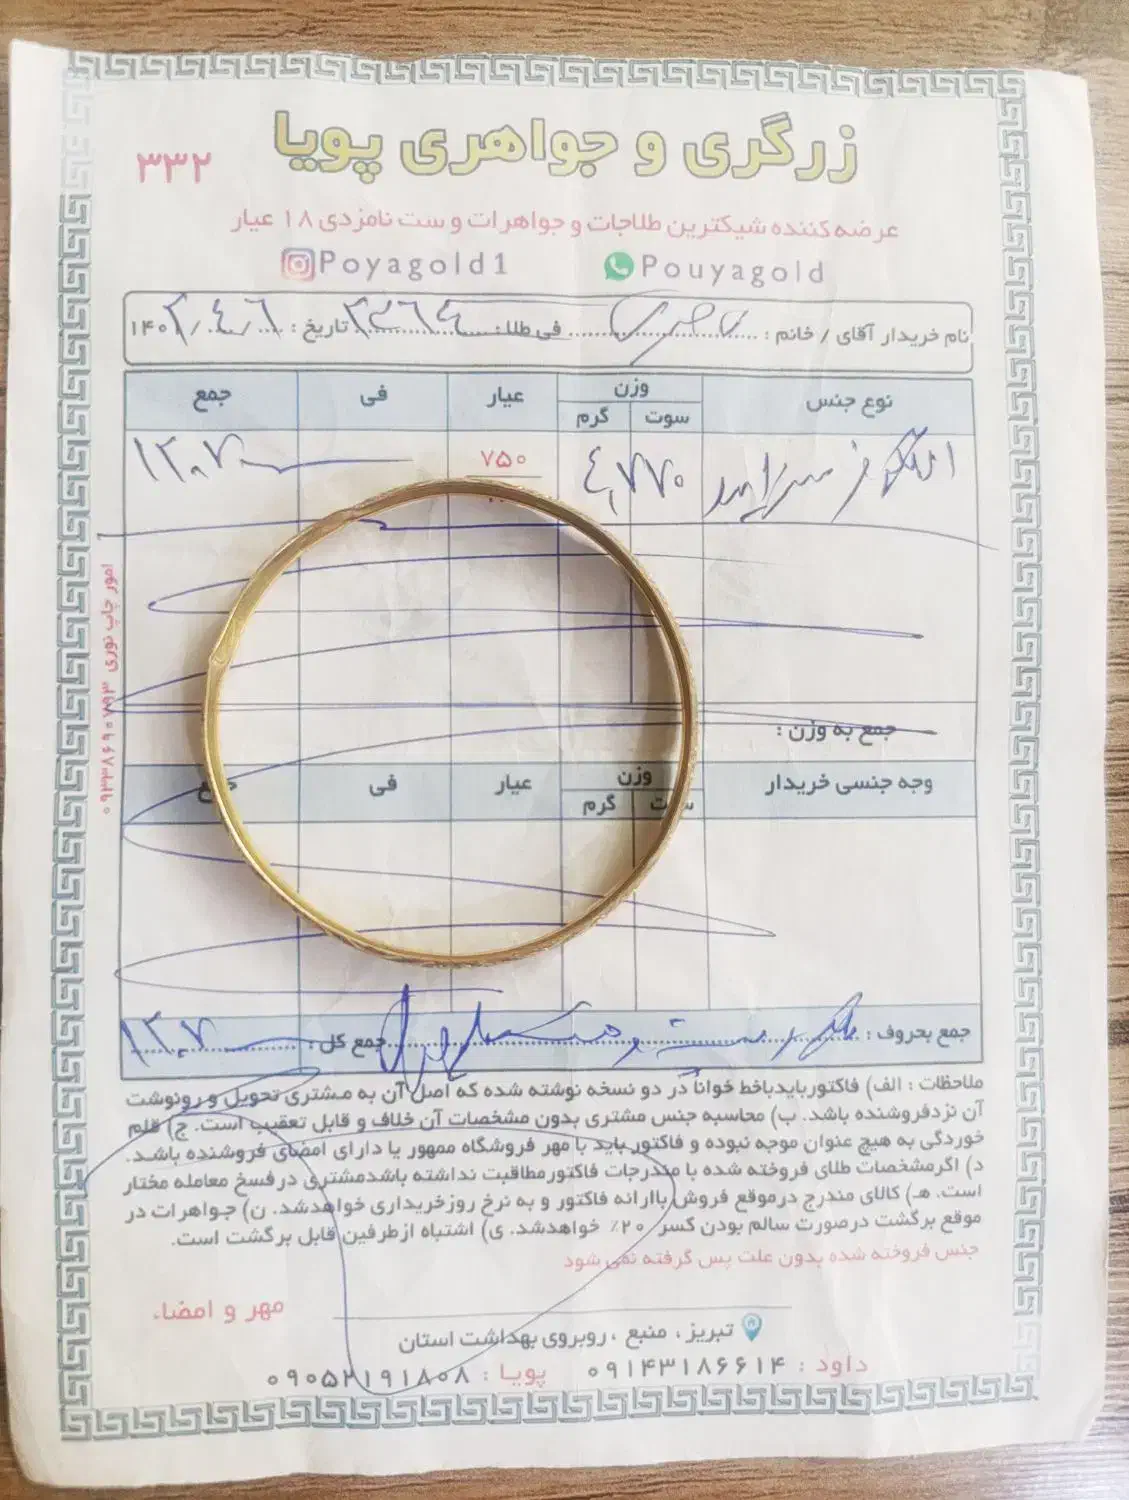 زرگری و جواهری پویا
۳۳۲
عرضه کننده شیکترین طلاجات و جواهرات و ست نامزدی ۱۸ عیار
Poyagold1 Pouyagold
نام خریدار آقای / خانم : فی طلا : ۳۳۶۴ تاریخ : ۶ / ۴ / ۱۴۰۳
نوع جنس وزن عیار فی جمع
سوت گرم
النگو ۴,۷۷۰ ۷۵۰ ۱۲,۷
جمع به وزن :
وجه جنسی خریدار وزن عیار فی
سوت گرم
جمع بحروف : جمع کل : ۱۲,۷
ملاحظات : الف) فاکتورباید باخط خوانا در دو نسخه نوشته شده که اصل آن به مشتری تحویل و رونوشت
آن نزد فروشنده باشد. ب) محاسبه جنس مشتری بدون مشخصات آن خلاف و قابل تعقیب است. ج) قلم
خوردگی به هیچ عنوان موجه نبوده و فاکتور باید با مهر فروشگاه ممهور یا دارای امضای فروشنده باشد.
د) اگر مشخصات طلای فروخته شده با مندرجات فاکتور مطاقبت نداشته باشد مشتری در فسخ معامله مختار
است. هـ) کالای مندرج در موقع فروش باارائه فاکتور و به نرخ روز خریداری خواهد شد. ن) جواهرات در
موقع برگشت درصورت سالم بودن کسر ۲۰٪ خواهد شد. ی) اشتباه از طرفین قابل برگشت است.
جنس فروخته شده بدون علت پس گرفته نمی شود
مهر و امضاء
تبریز ، منبع ، روبروی بهداشت استان
داود : ۰۹۱۴۳۱۸۶۶۱۴ پویا : ۰۹۰۵۲۱۹۱۸۰۸
امور چاپ نوری ۰۹۳۳۸۶۹۰۷۹۳